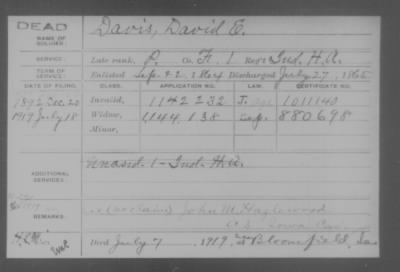 DEAD
NAME OF SOLDIER:
Davis, David E.
SERVICE:
Late rank, P. Co. F. 1 Reg't Ind. H.A.
TERM OF SERVICE:
Enlisted 1864 Discharged July 27, 1865
DATE OF FILING. CLASS. APPLICATION NO. LAW. CERTIFICATE NO.
1892 Dec. 20 Invalid, 1142232 1011140
1919 July 18 Widow, 1,144,138 880698
Minor,
ADDITIONAL SERVICES:
Unasd. 1- Ind. H.A.
REMARKS:
John M. Hazlewood
Iowa Cav.
Died July 7, 1919, at Bloomfield, Ia